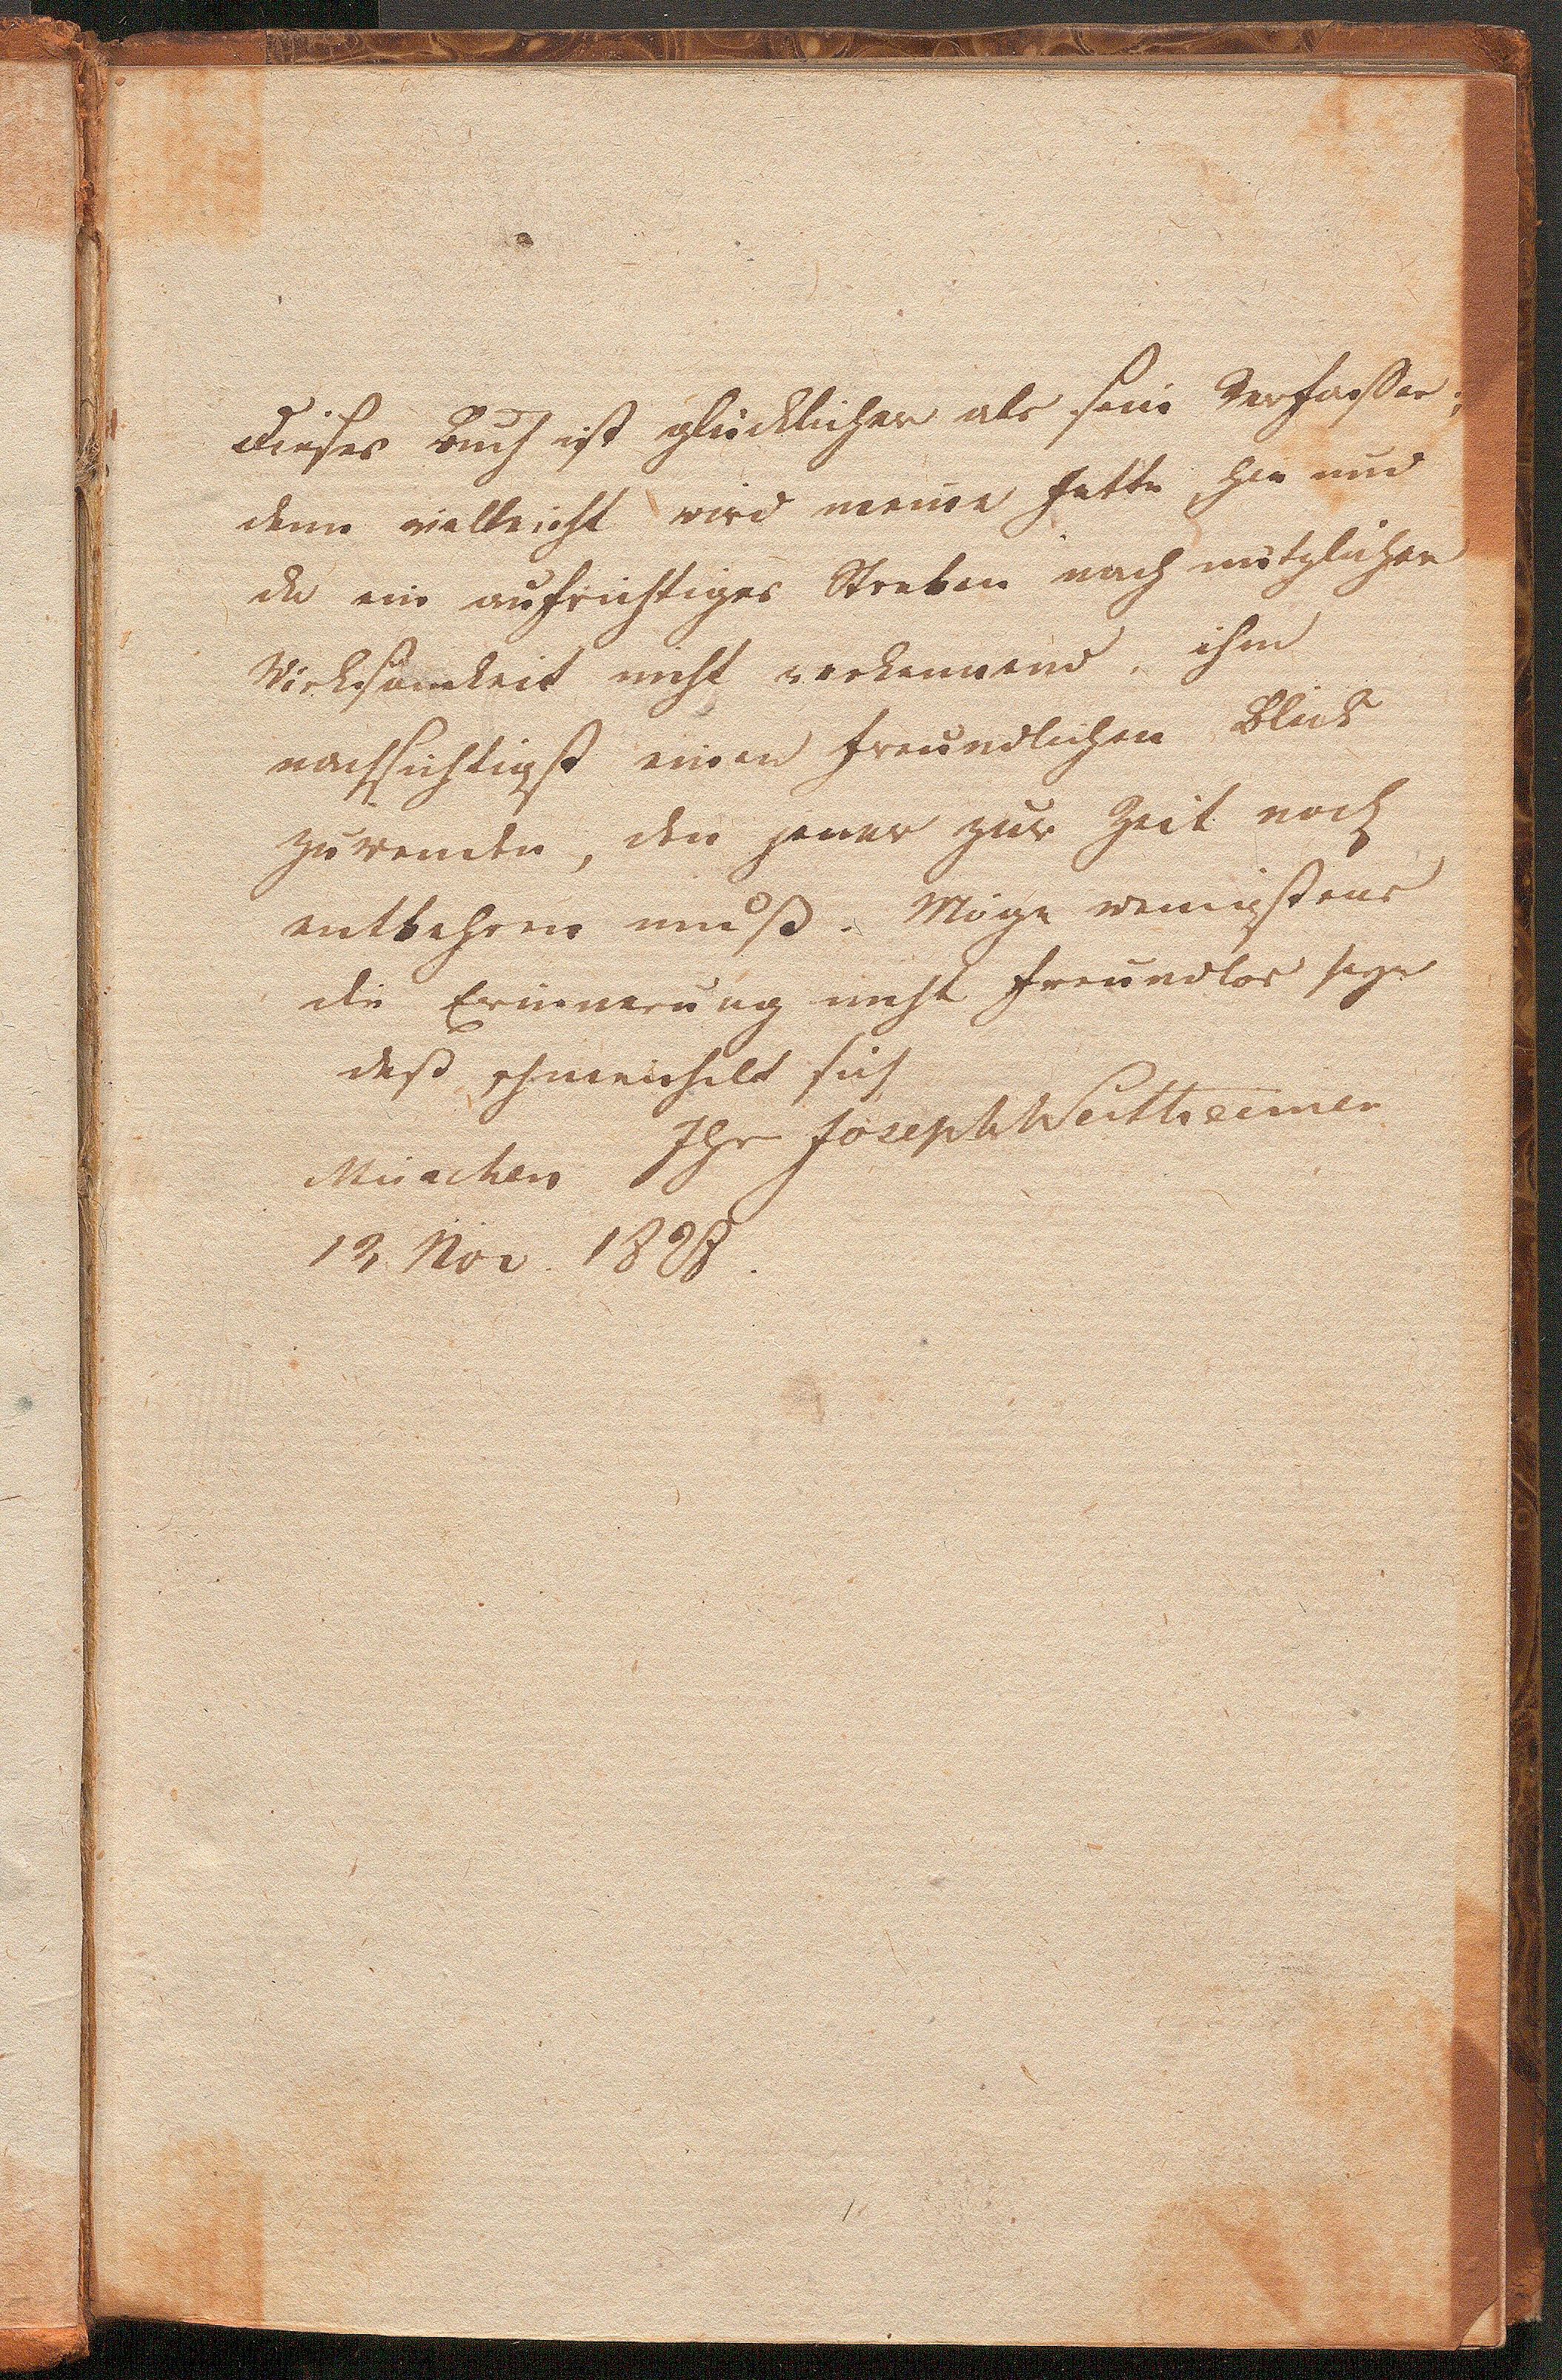 Dieses Buch ist glücklicher als sein Verfasser;
denn vielleicht wird meine Jette, hie und
da ein aufrichtiges Streben nach nützlicher
Wirksamkeit nicht verkennend, ihm
nachsichtigst einen freundlichen Blick
zuwenden, den jener zur Zeit noch
entbehren muß. Möge wenigstens
die Erinnerung nicht freundlos seyn
deß schmeichelt sich
Ihr Joseph Wertheimer
München
12 Nov. 1828.